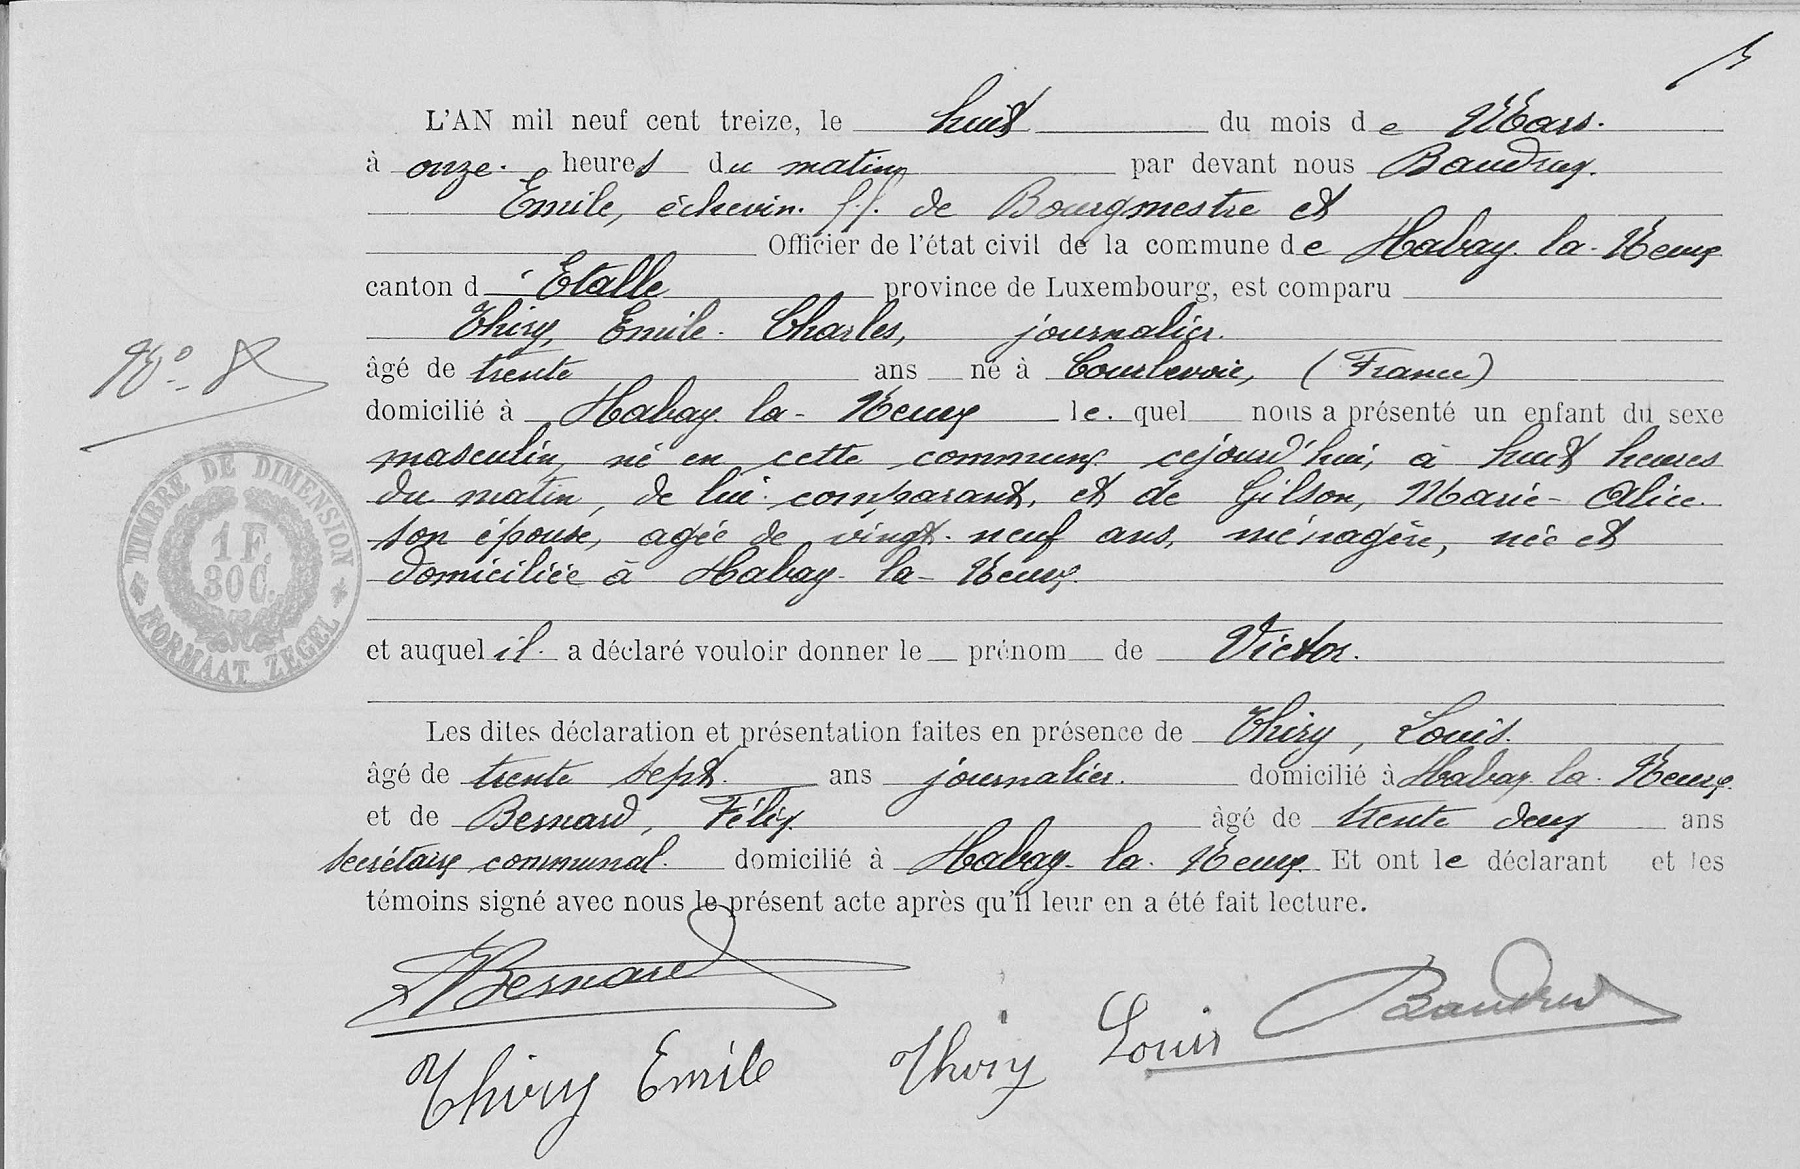 L'AN mil neuf cent treize, le huit du mois de Mars.
à onze. heures du matin par devant nous Baudrux.
Emile, échevin. f.f. de Bourgmestre et
Officier de l'état civil de la commune de Habay. la. Neuve
canton d'Etalle province de Luxembourg, est comparu
Thiry, Emile. Charles, journalier.
N° 8
âgé de trente ans né à Courbevoie, (France)
domicilié à Habay. la - Neuve le. quel nous a présenté un enfant du sexe
masculin, né en cette commune cejourd'hui, à huit heures
du matin, de lui comparant, et de Gilson, Marie - Alice
son épouse, agée de vingt. neuf ans, ménagère, née et
domiciliée à Habay - la - Neuve.
TIMBRE DE DIMENSION
1 F.
30 C.
FORMAAT ZEGEL
et auquel il. a déclaré vouloir donner le prénom de Victor.
Les dites déclaration et présentation faites en présence de Thiry, Louis.
âgé de trente sept. ans journalier. domicilié à Habay. la. Neuve.
et de Bernard, Félix âgé de trente deux ans
secrétaire communal. domicilié à Habay - la. Neuve. Et ont le déclarant et les
témoins signé avec nous le présent acte après qu'il leur en a été fait lecture.
FBernard
Baudrux
Thiry Emile Thiry Louis